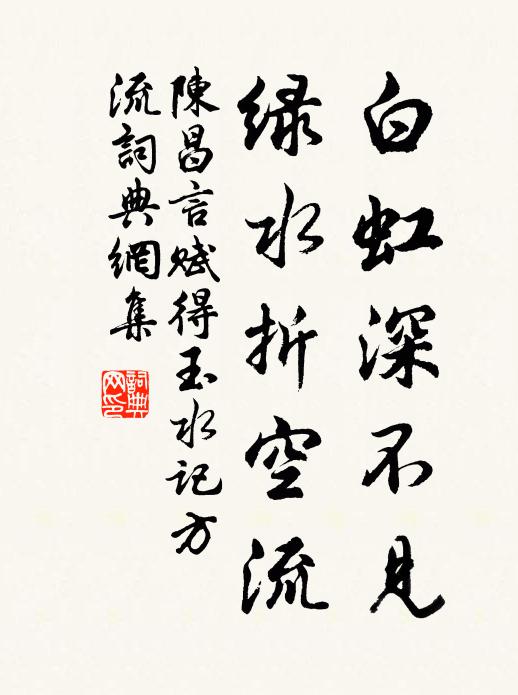 白虹深不見
緑水折空流
陳昌言賦得玉水記方
流詞典網集
詞典網印